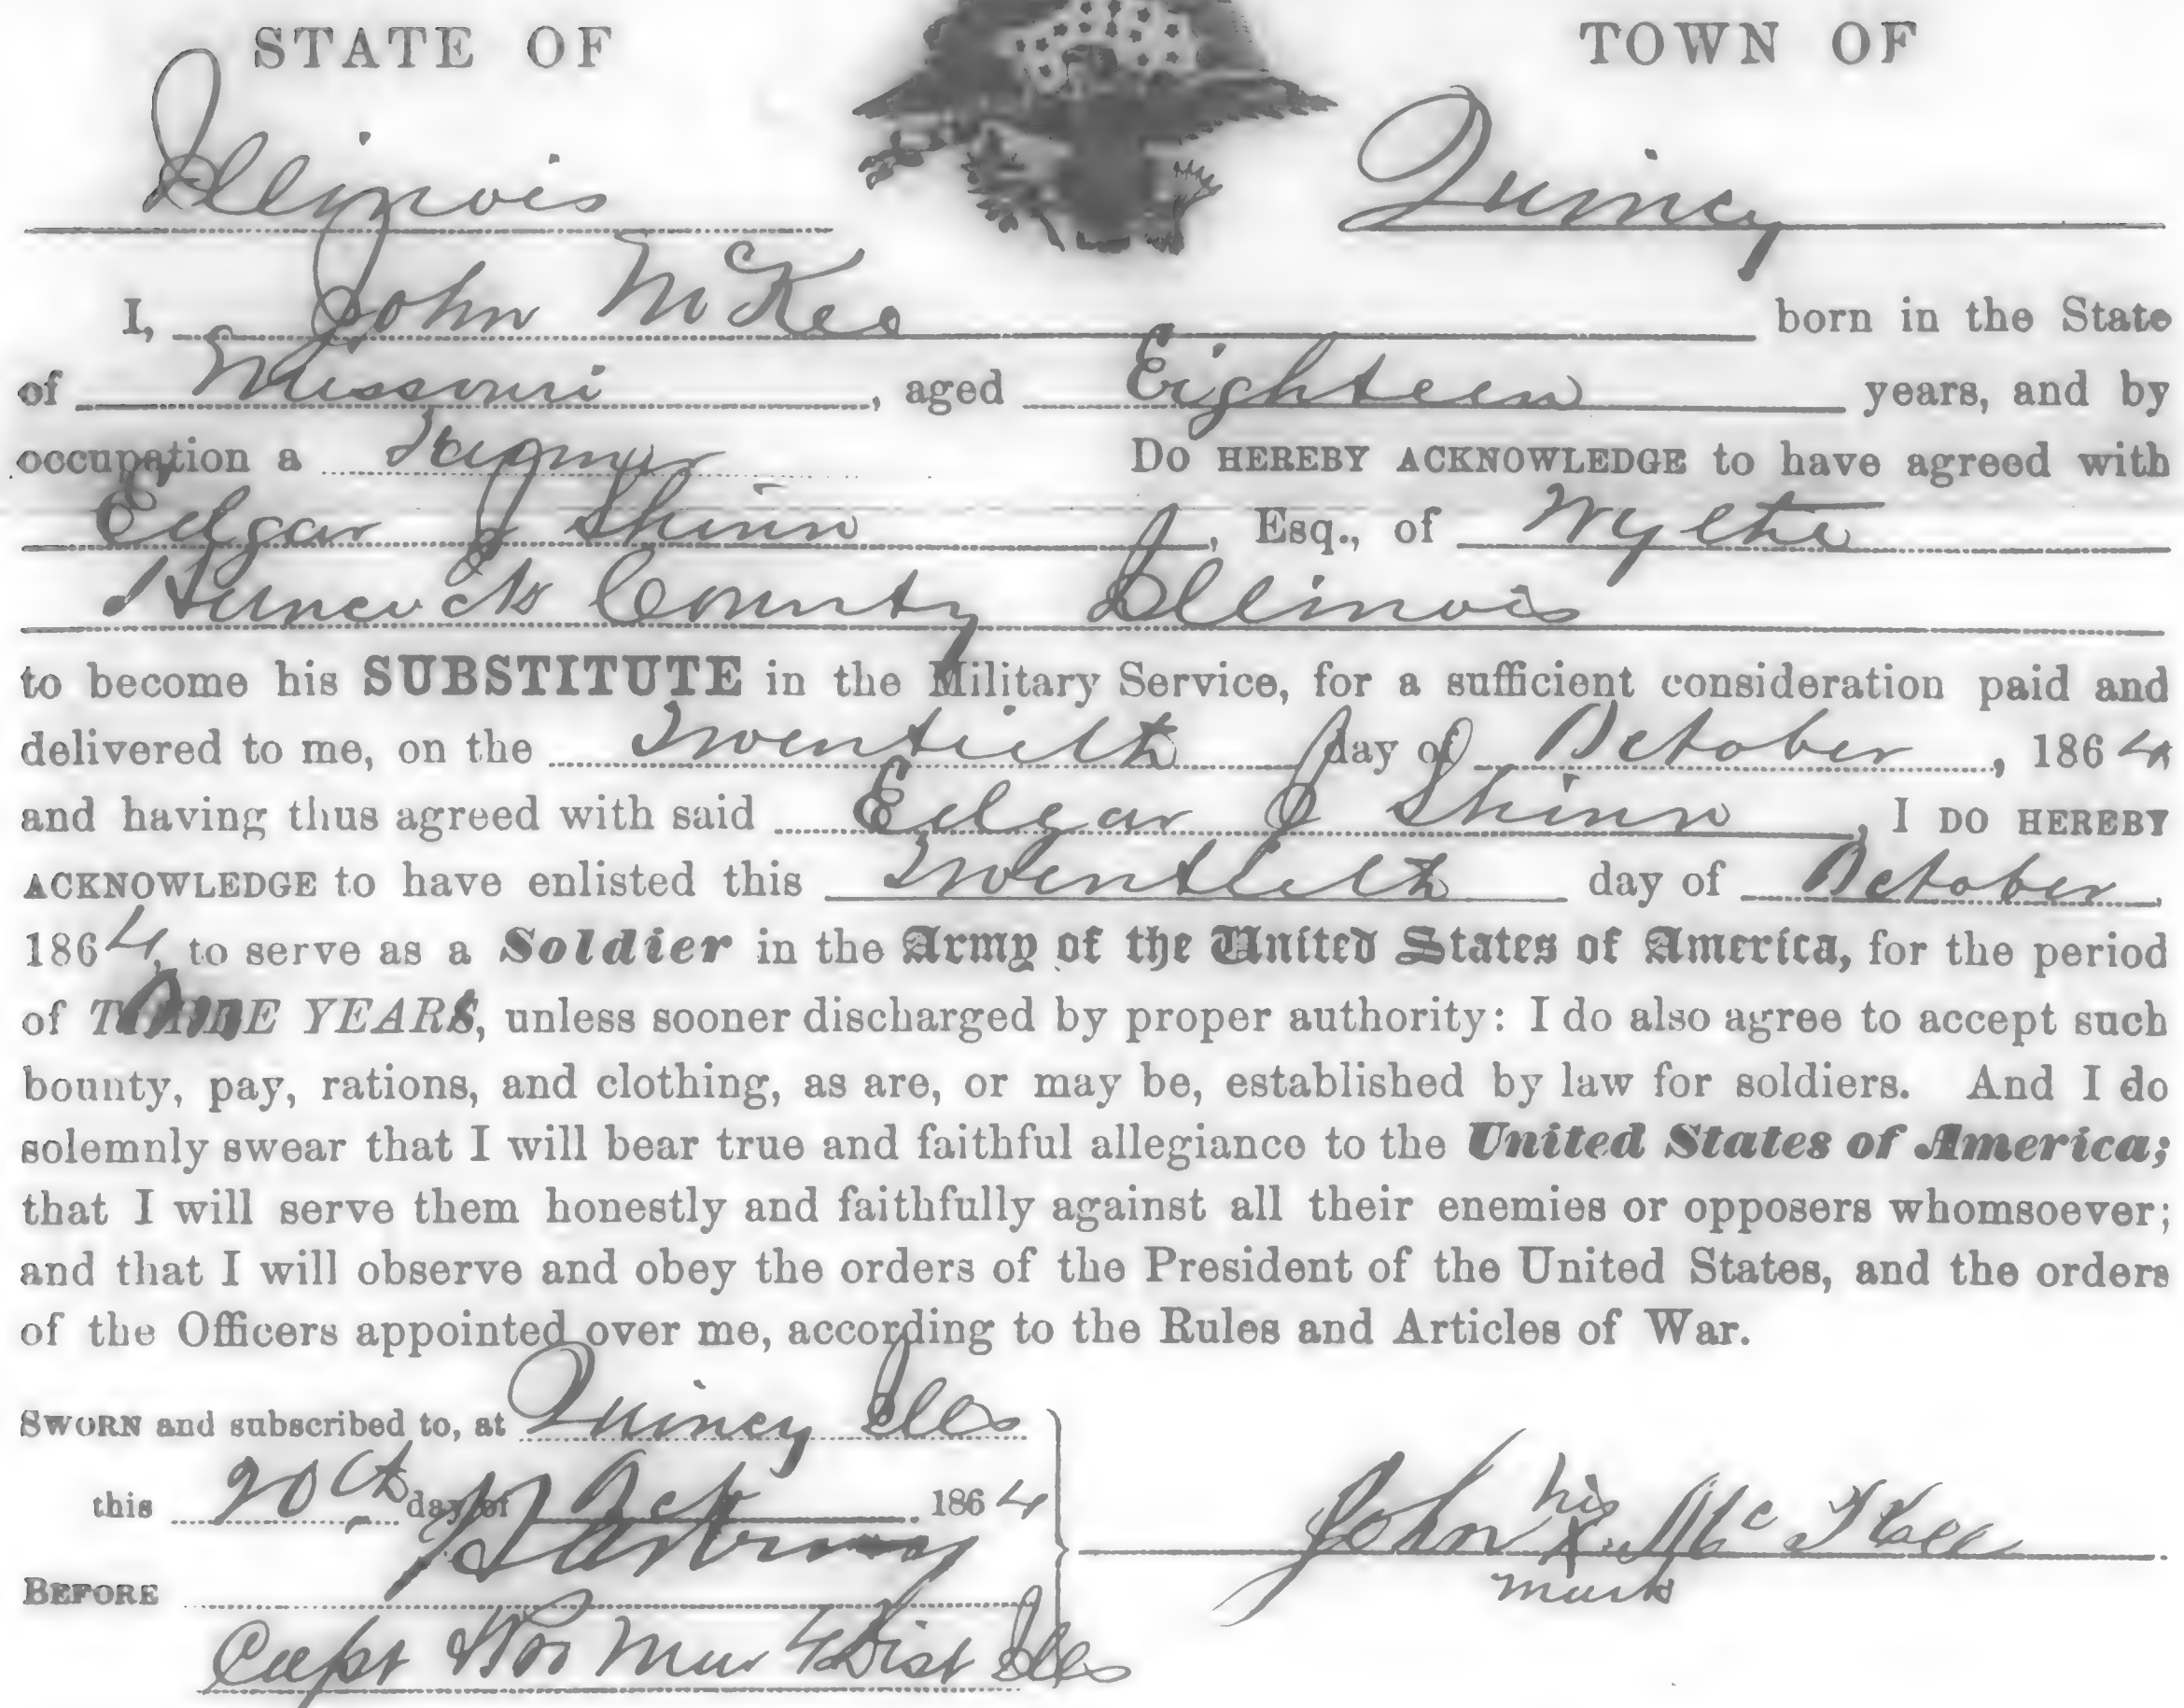 STATE OF TOWN OF
Illinois Quincy
I, John McKee born in the State
of Missouri, aged Eighteen years, and by
occupation a Farmer DO HEREBY ACKNOWLEDGE to have agreed with
Edgar J Shinn, Esq., of Wythe
Hancock County Illinois
to become his SUBSTITUTE in the Military Service, for a sufficient consideration paid and
delivered to me, on the Twentieth day of October, 1864
and having thus agreed with said Edgar J Shinn, I DO HEREBY
ACKNOWLEDGE to have enlisted this Twentieth day of October,
1864, to serve as a Soldier in the Army of the United States of America, for the period
of One YEARS, unless sooner discharged by proper authority: I do also agree to accept such
bounty, pay, rations, and clothing, as are, or may be, established by law for soldiers. And I do
solemnly swear that I will bear true and faithful allegiance to the United States of America;
that I will serve them honestly and faithfully against all their enemies or opposers whomsoever;
and that I will observe and obey the orders of the President of the United States, and the orders
of the Officers appointed over me, according to the Rules and Articles of War.
SWORN and subscribed to, at Quincy Ills
this 20th day of Oct 1864
John his X McKee
mark
BEFORE
Capt Pro Mar 4 Dist Ills